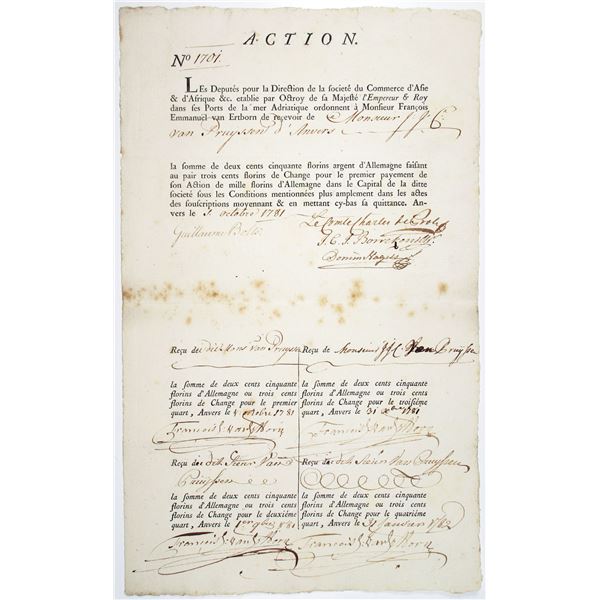 ACTION.
No 1701.
LEs Deputés pour la Direction de la societé du Commerce d'Asie
& d'Afrique &c. etablie par Octroy de sa Majesté l'Empereur & Roy
dans ses Ports de la mer Adriatique ordonnent à Monsieur François
Emmanuel van Ertborn de recevoir de Monsieur J. C.
van Pruyssen d'Anvers
la somme de deux cents cinquante florins argent d'Allemagne faisant
au pair trois cents florins de Change pour le premier payement de
son Action de mille florins d'Allemagne dans le Capital de la ditte
societé sous les Conditions mentionnées plus amplement dans les actes
des souscriptions moyennant & en mettant cy-bas sa quittance. An-
vers le octobre 1781
Le Comte Charles de Proli
Guillaume Bolts
J. C. J. Borrekens
Reçu de dit Mons Van Pruyssen
la somme de deux cents cinquante
florins d'Allemagne ou trois cents
florins de Change pour le premier
quart, Anvers le octobre 1781
Reçu de Monsieur J. C. Van Pruyssen
la somme de deux cents cinquante
florins d'Allemagne ou trois cents
florins de Change pour le troisiême
quart, Anvers le 31 Xbre 1781
Reçu de dit Sieur Van
Pruyssen
la somme de deux cents cinquante
florins d'Allemagne ou trois cents
florins de Change pour le deuxiême
quart, Anvers le 1781
Reçu de dit Sieur Van Pruyssen
la somme de deux cents cinquante
florins d'Allemagne ou trois cents
florins de Change pour le quatriême
quart, Anvers le 31 Janvier 1782